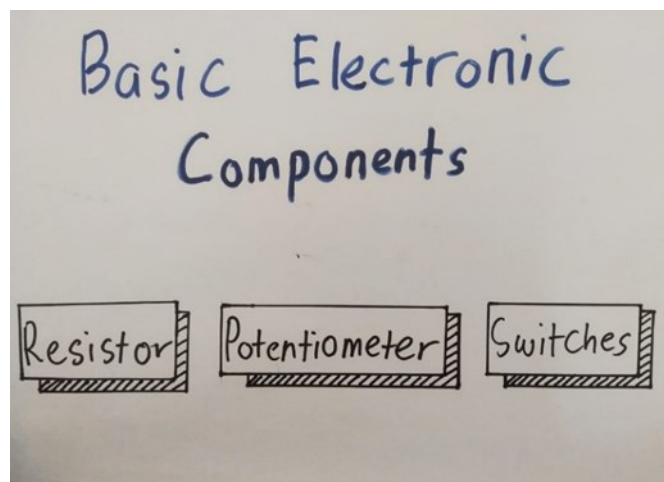 Basic Electronic
Components
Resistor Potentiometer Switches